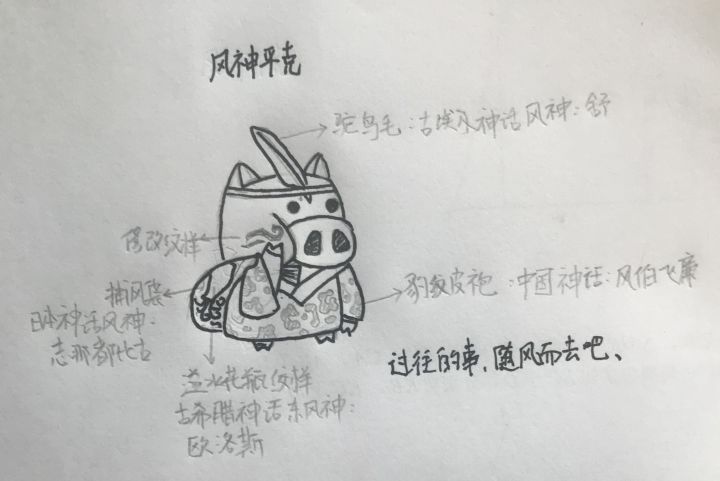 风神平克
驼鸟毛:古埃及神话风神:舒
修改纹样
捕风袋
日本神话风神:
志那都比古
豹纹皮袍:中国神话:风伯飞廉
过往的事,随风而去吧、
溢水花瓶纹样
古希腊神话东风神:
欧洛斯